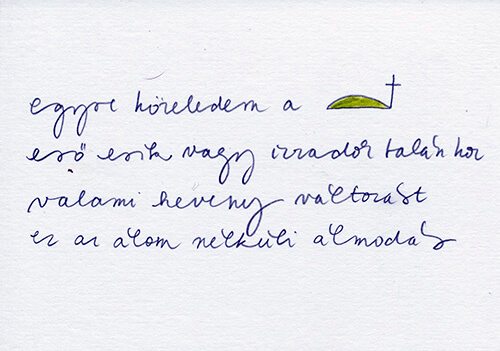 egyre közeledem a
eső esik vagy izzadok talán hoz
valami heveny változást
ez az álom nélküli álmodás